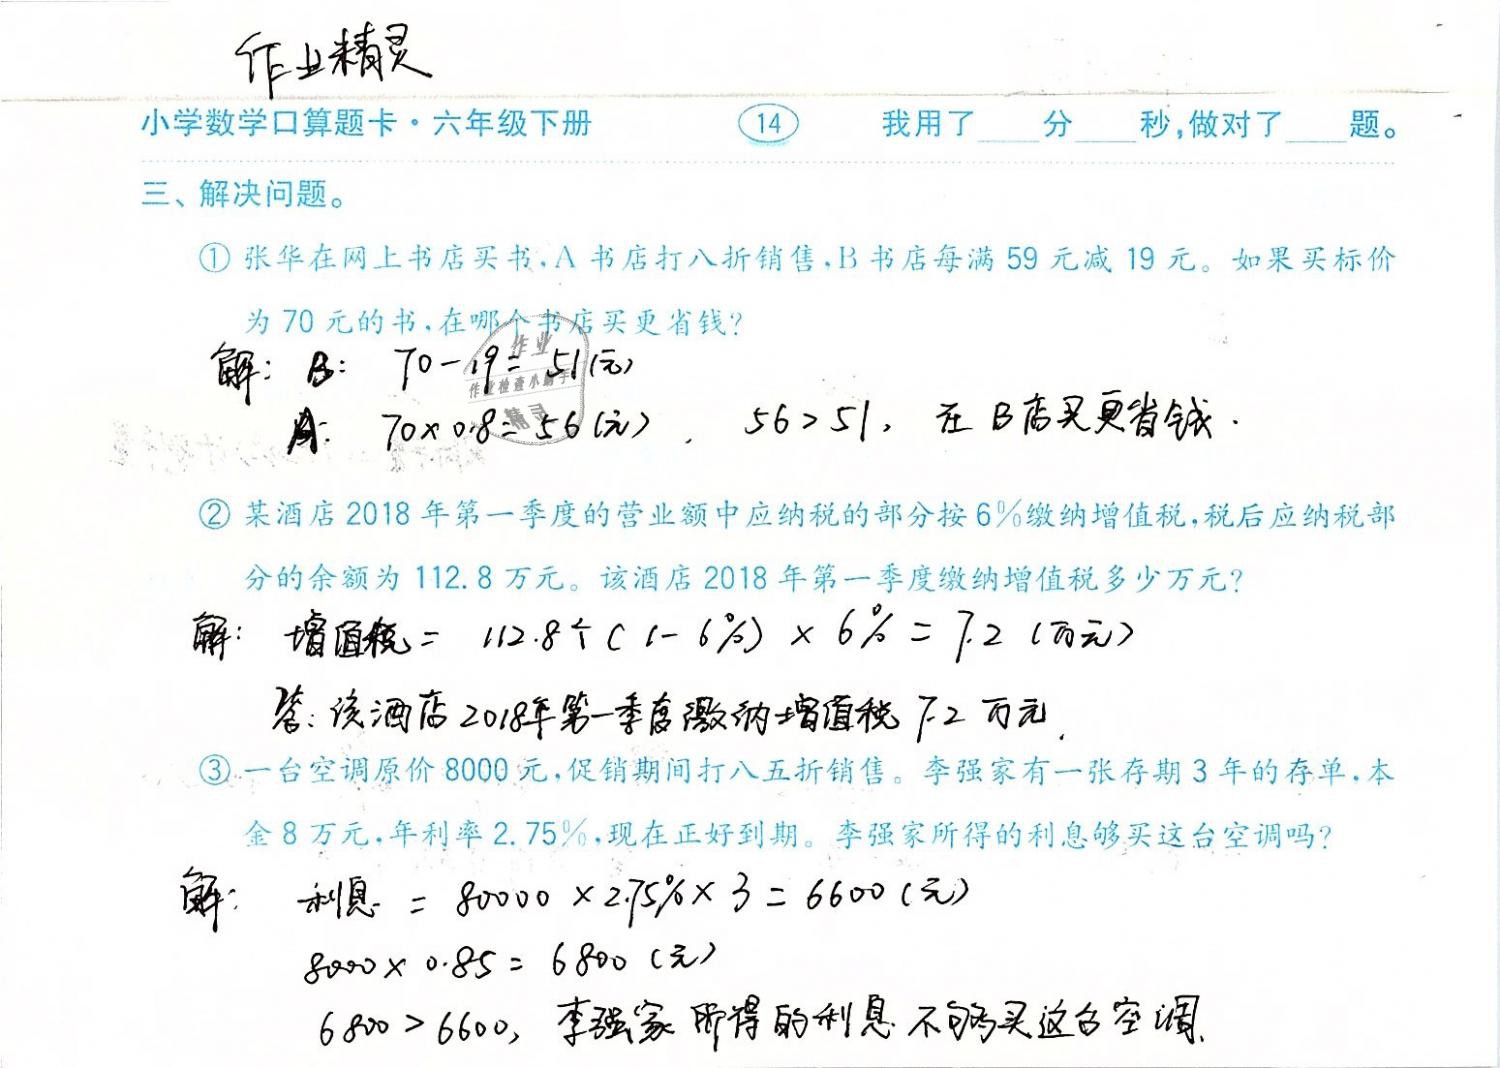 作业精灵
小学数学口算题卡·六年级下册 14 我用了____分____秒,做对了____题。
三、解决问题。
① 张华在网上书店买书,A 书店打八折销售,B 书店每满 59 元减 19 元。如果买标价
为 70 元的书,在哪个书店买更省钱?
作业
作业检查小助手
精灵
解: B: 70-19=51(元)
A: 70×0.8=56(元), 56>51, 在B店买更省钱.
② 某酒店 2018 年第一季度的营业额中应纳税的部分按 6%缴纳增值税,税后应纳税部
分的余额为 112.8 万元。该酒店 2018 年第一季度缴纳增值税多少万元?
解: 增值税= 112.8÷(1-6%)×6%=7.2(万元)
答:该酒店2018年第一季度缴纳增值税7.2万元.
③ 一台空调原价 8000 元,促销期间打八五折销售。李强家有一张存期 3 年的存单,本
金 8 万元,年利率 2.75%,现在正好到期。李强家所得的利息够买这台空调吗?
解: 利息=80000×2.75%×3=6600(元)
8000×0.85=6800(元)
6800>6600, 李强家所得的利息不够买这台空调.